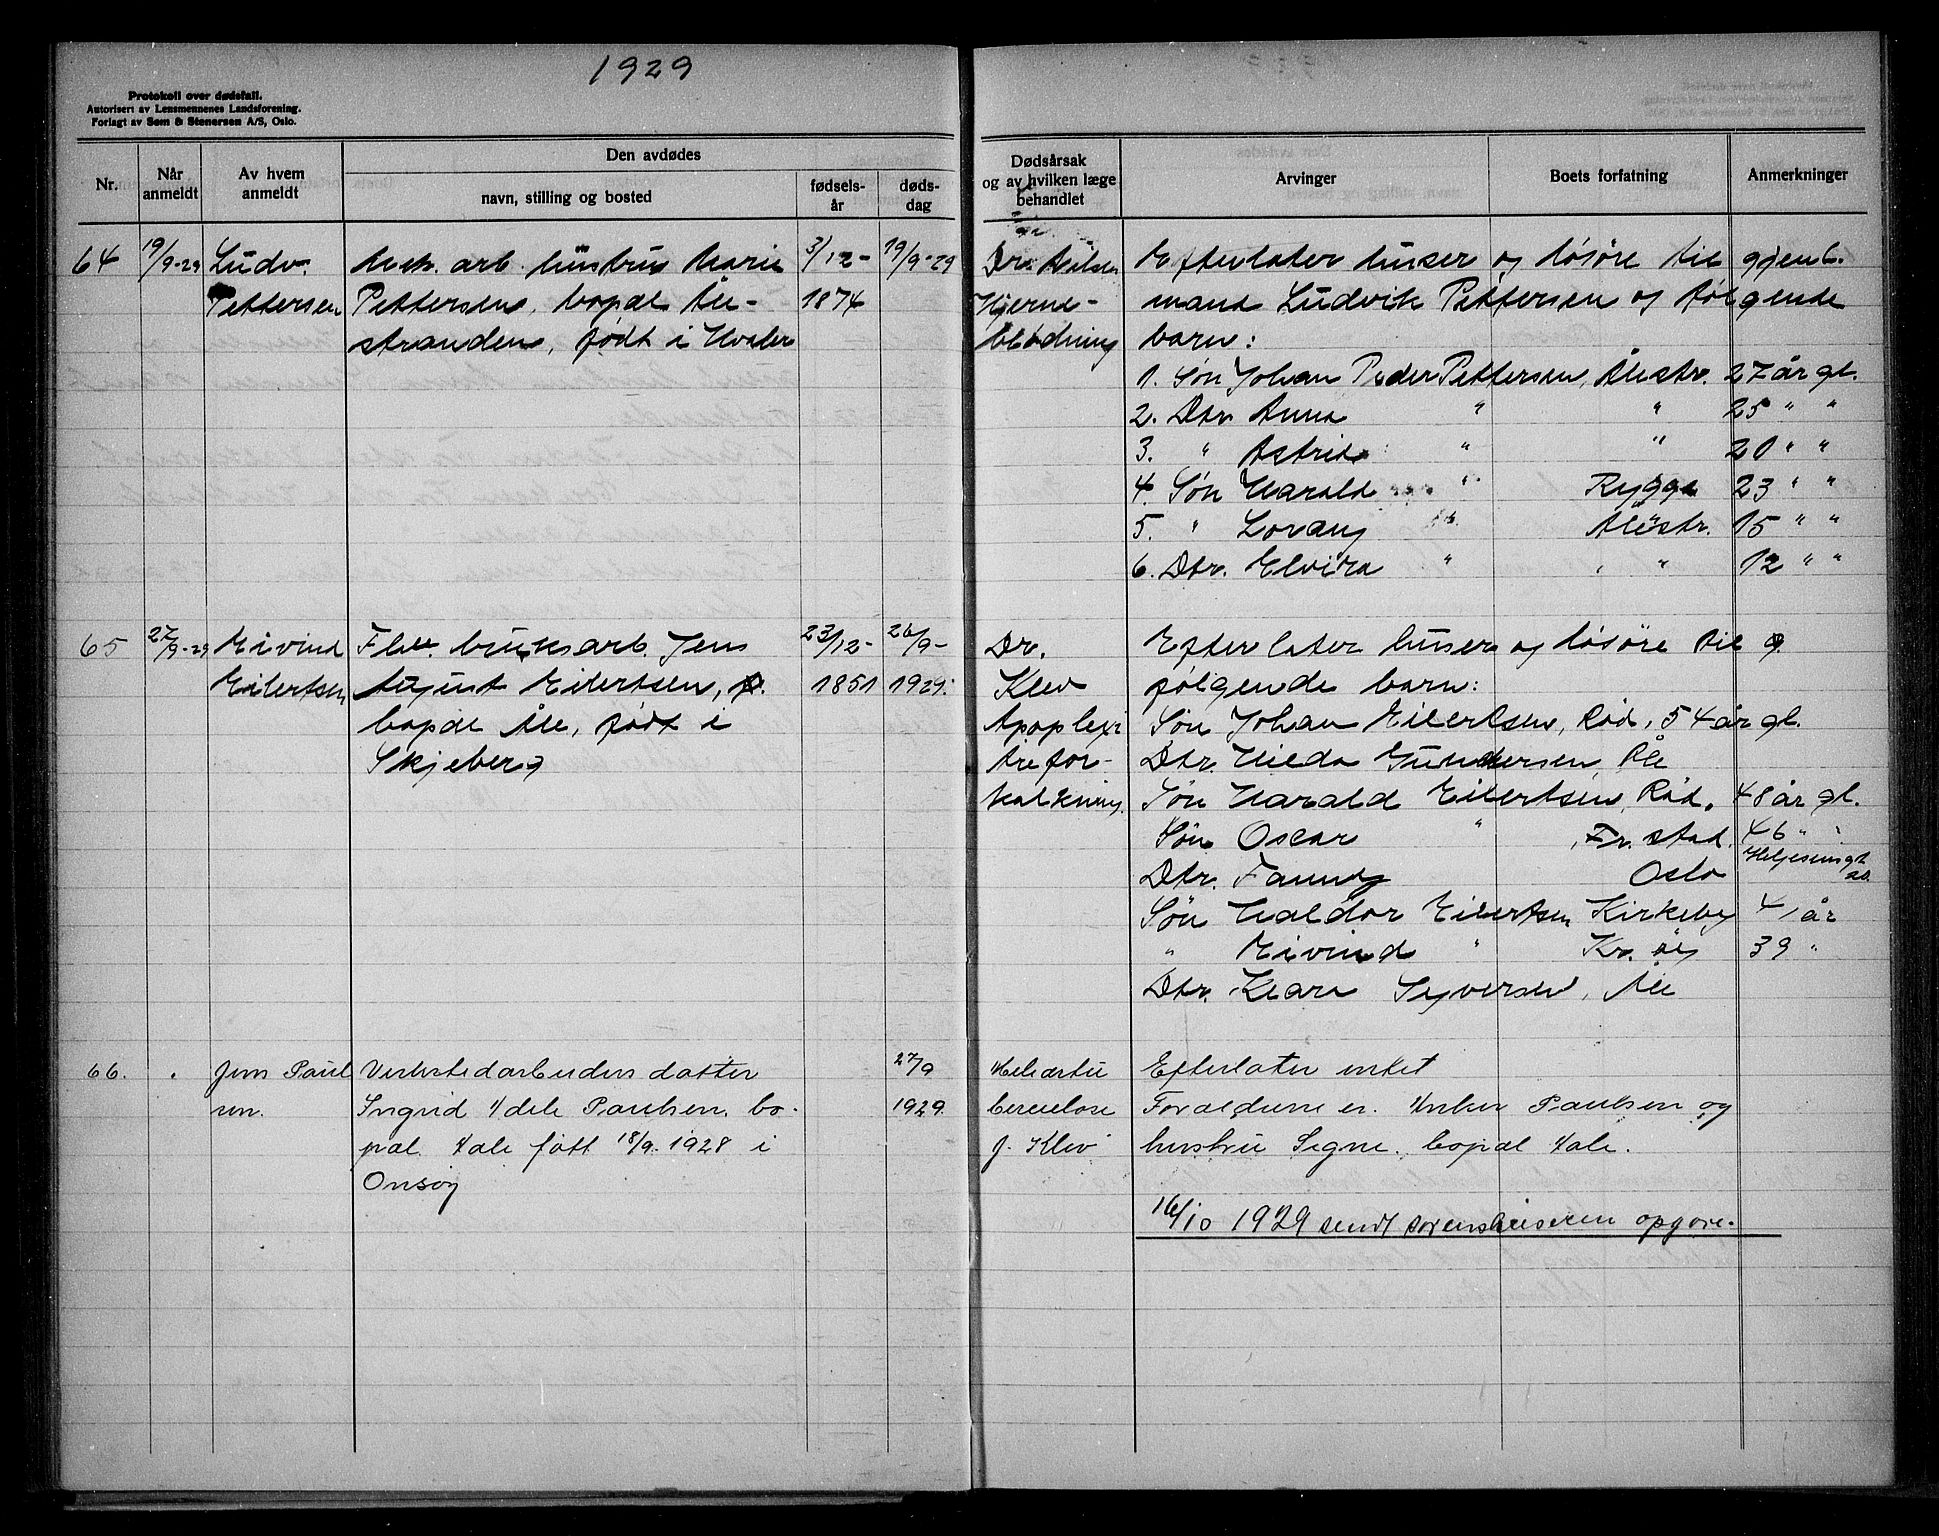 1929
Protokoll over dødsfall.
Autorisert av Lensmennenes Landsforening.
Forlagt av Søm & Stenersen A/S, Oslo.
Nr.
Når anmeldt
Av hvem anmeldt
Den avdødes
navn, stilling og bosted
fødselsår
dødsdag
Dødsårsak
og av hvilken læge
behandlet
Arvinger
Boets forfatning
Anmerkninger
64 19/9-29 Ludv. arb. hustru Marie 3/12- 19/9-29
Pettersen Pettersen, bopæl Åle- 1874
stranden, født i Hvaler
Dr. Nilsen Efterlater huser og løsøre til gjenl.
Hjerne- mand Ludvik Pettersen og følgende
blødning barn:
1. Søn Johan Peder Pettersen, Ålestr. 27 år gl.
2. Dtr. Anna " " 25 " "
3. " Astrid " " 20 " "
4. Søn Harald " Rygge 23 " "
5. " Lovang " Ålestr. 15 " "
6. Dtr. Elvira " " 12 " "
65 27/9-29 Eivind bruksarb. Jens 23/12- 26/9-
Eilertsen August Eilertsen, 1851 1929.
bopæl Åle, født i
Skjeberg
Dr. Efterlater huser og løsøre til
Klev følgende barn:
Apoplexi Søn Johan Eilertsen, Rød, 54 år gl.
Årefor- Dtr. Hilda Gundersen, Åle
kalkning. Søn Harald Eilertsen, Rød, 48 år gl.
Søn Oscar " , Fr.stad. 46 " "
Dtr. Fanny Oslo Heljesensgt
Søn Haldor Eilertsen Kirkeby 41 år
" Eivind " Kr.øy 39 "
Dtr. Klara Syversen, Åle
66. " Jens Paul Verkstedarbeiders datter 27/9
sen. Ingrid Adele Paulsen, bo- 1929.
pæl Aale født 18/9 1928 i
Onsøy
Efterlater intet
Forældrene er Anker Paulsen og
J. Klev hustru Signe, bopæl Aale.
16/10 1929 sendt sorenskriveren opgave.